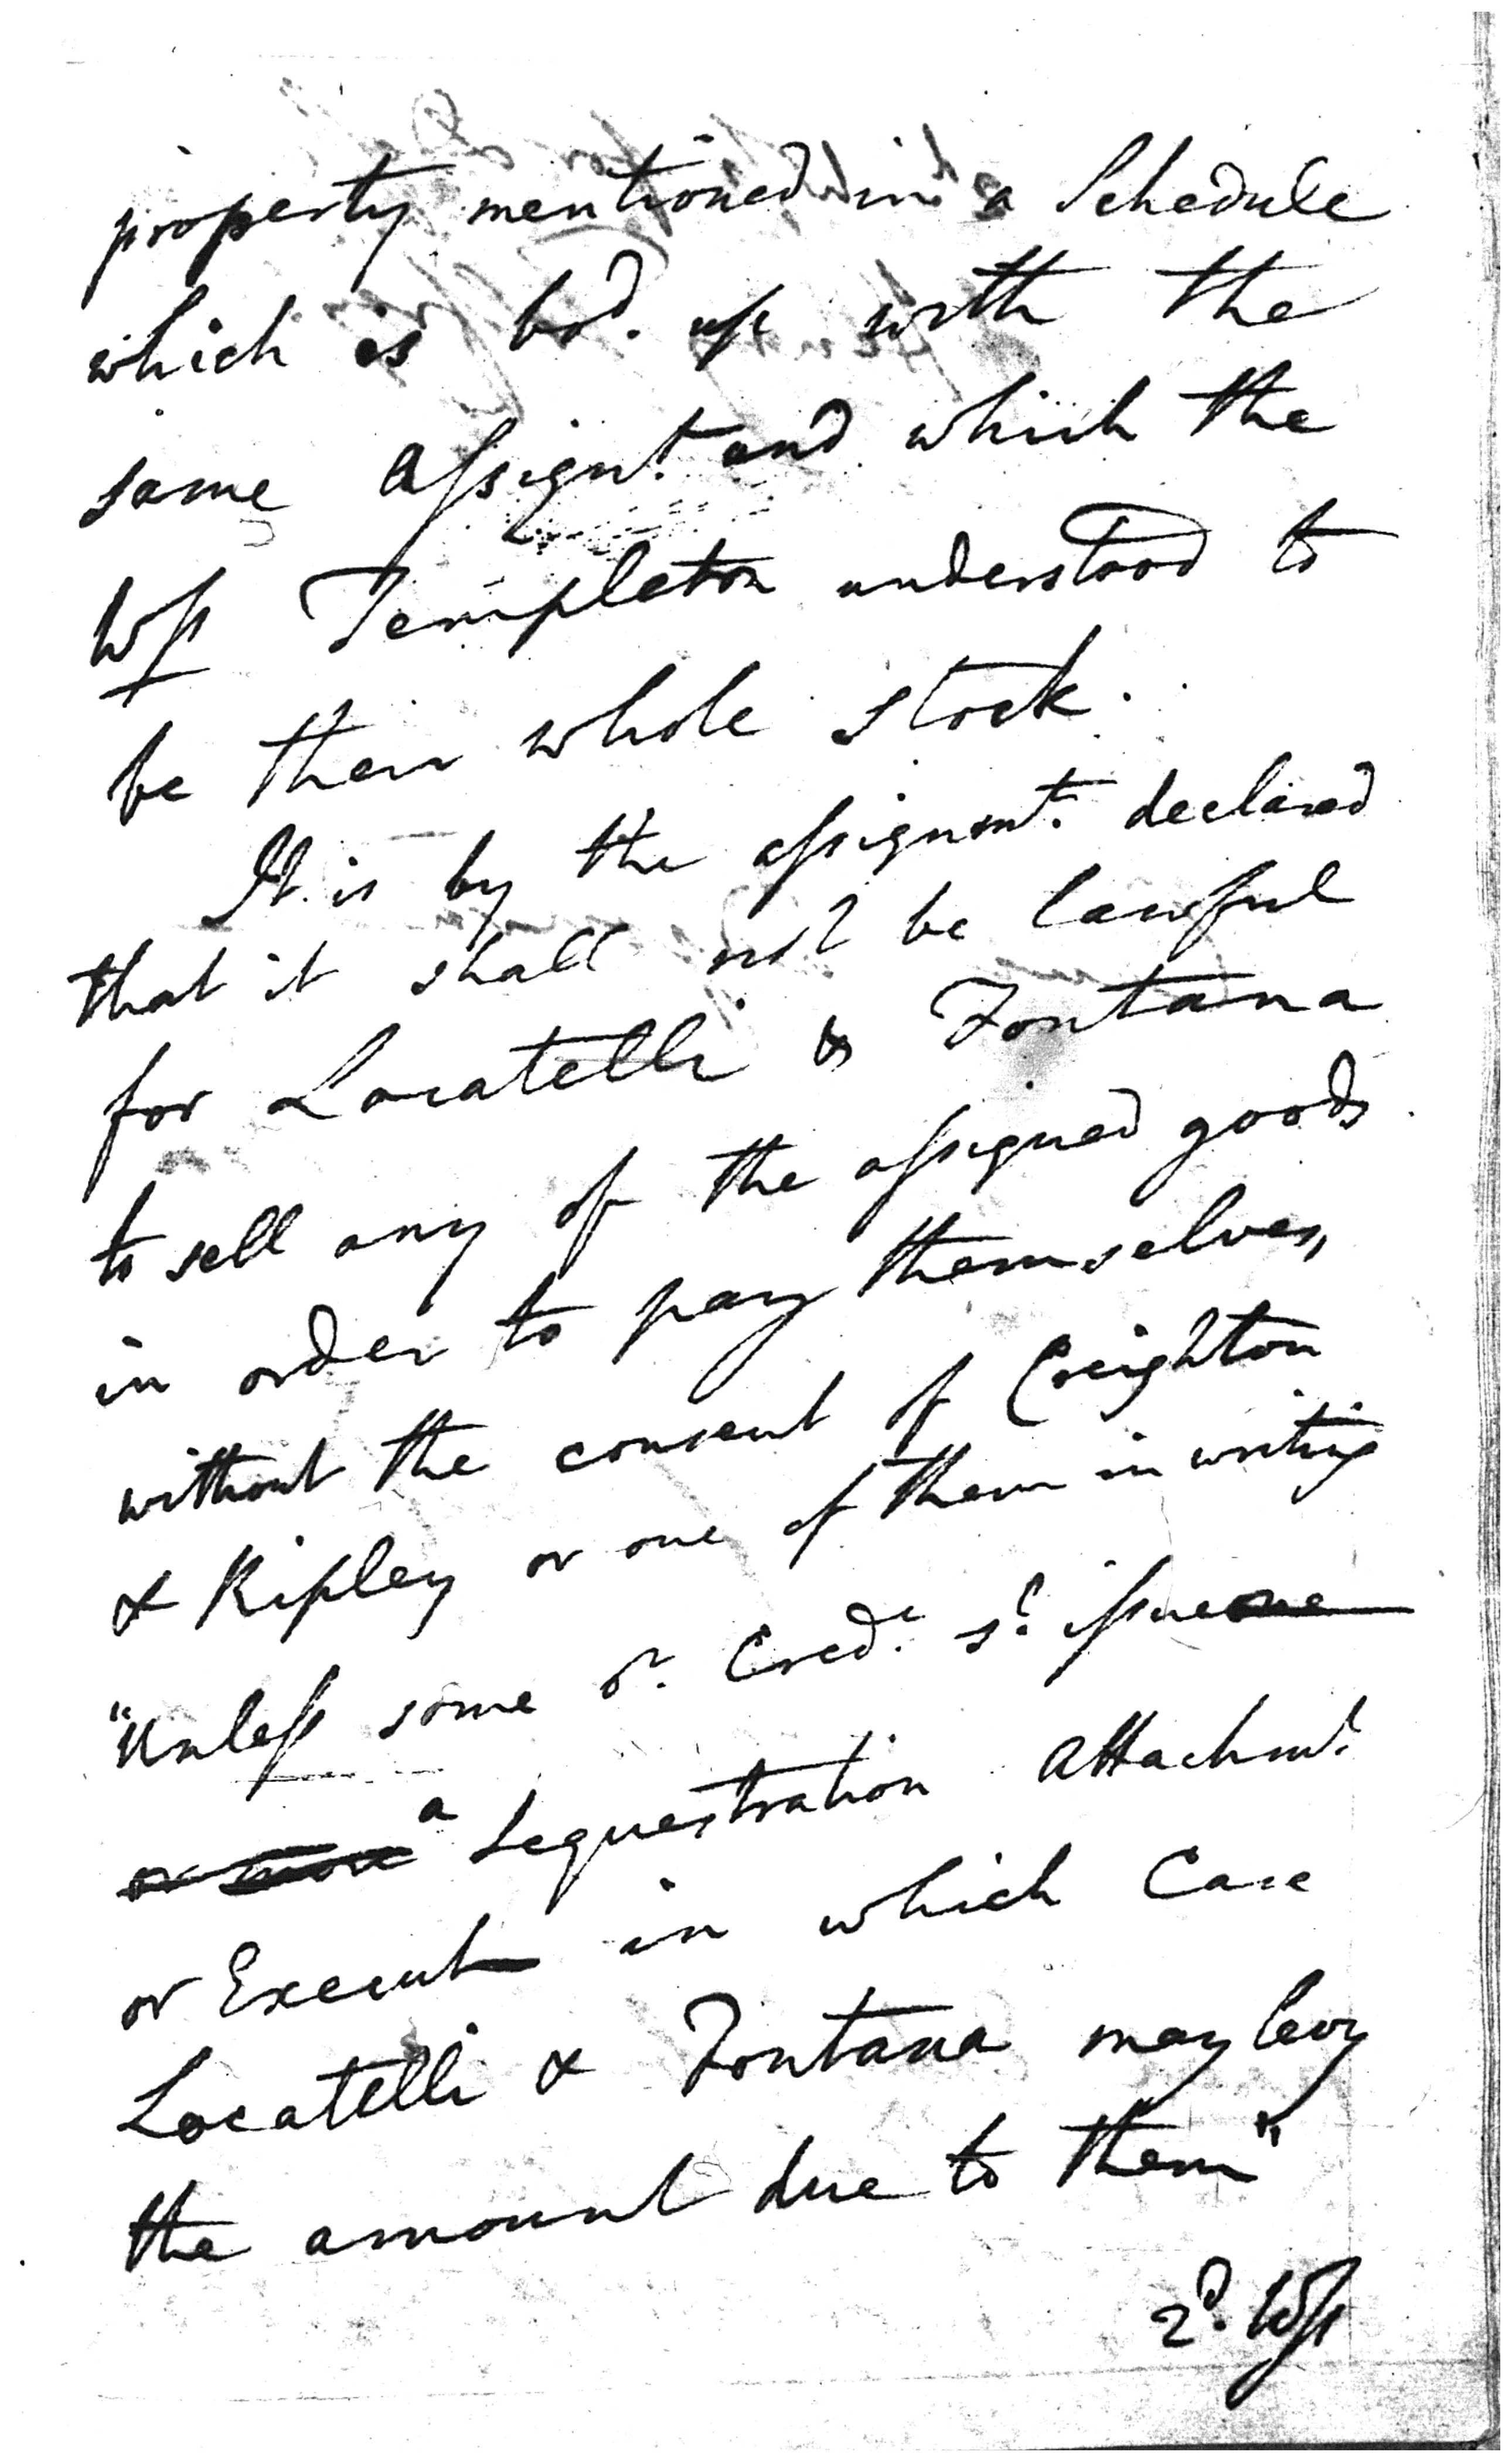 property mentioned in a Schedule
which is bod. up with the
same Assignt. and which the
Wss Templeton understood to
be their whole stock.
It is by the assignmt. declared
that it shall not be lawful
for Locatelli & Fontana
to sell any of the assigned goods
in order to pay themselves,
without the consent of Creighton
& Ripley or one of them in writing
"Unless some or. Cred. sd. issue one
or more a Sequestration Attachmt.
or Execut in which Case
Locatelli & Fontana may levy
the amount due to them"
2d. Wss